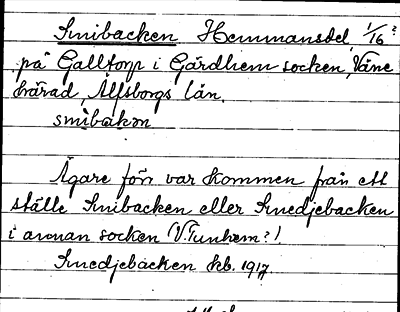 Smibacken Hemmansdel, 1/16?
på Galltorp i Gärdhem socken, Väne
härad, Älfsborgs län.
smibakɔn
Ägare förr var kommen från ett
ställe Smibacken eller Smedjebacken
i annan socken (V. Tunhem?)
Smedjebacken kb. 1917.